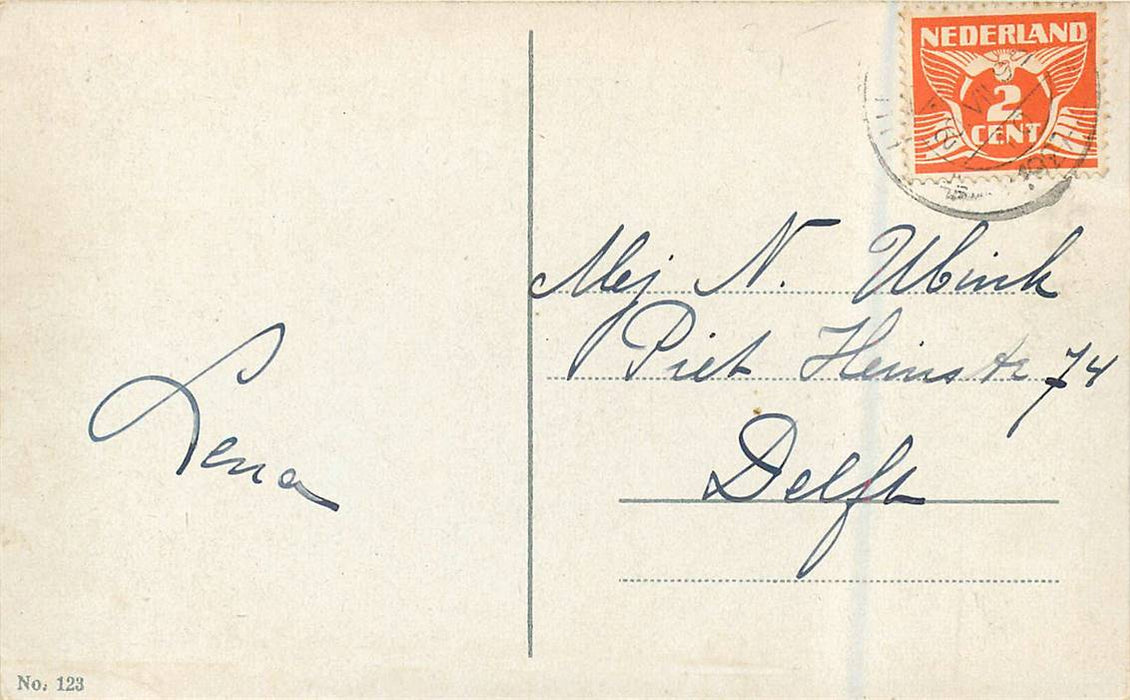 NEDERLAND
2
CENT
Mej N. Ubink
Piet Heinstr 74
Delft
Lena
No. 123